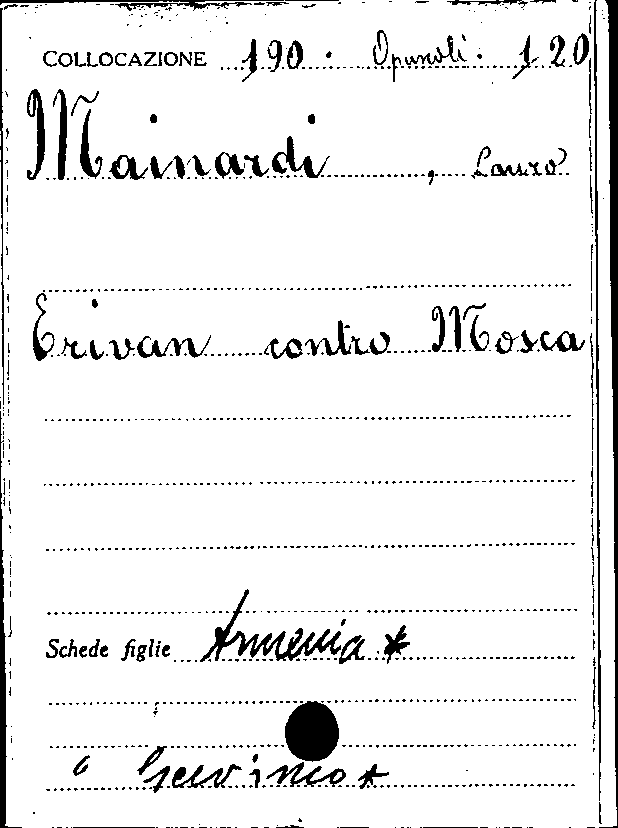 COLLOCAZIONE 190. Opuscoli. 120
Mainardi, Lauro
Erivan contro Mosca
Schede figlie Armenia *